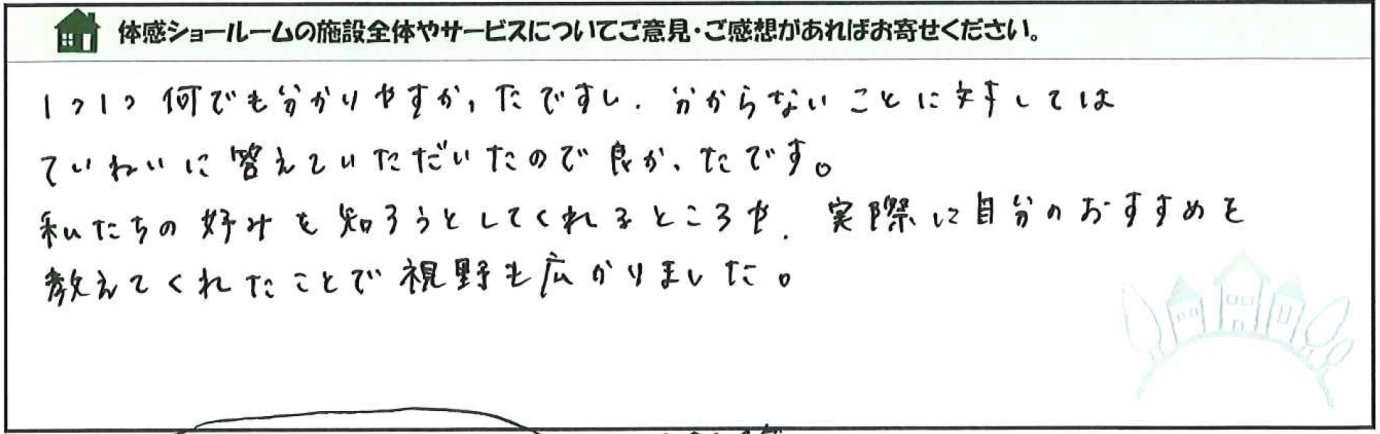 体感ショールームの施設全体やサービスについてご意見・ご感想があればお寄せください。
1つ1つ 何でも分かりやすかったですし、分からないことに対しては
ていねいに答えていただいたので良かったです。
私たちの好みを知ろうとしてくれるところや、実際に自分のおすすめを
教えてくれたことで視野も広がりました。